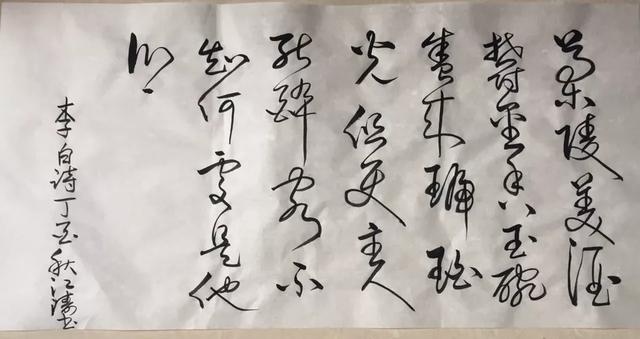 兰陵美酒
鬱金香玉碗
盛来琥珀
光但使主人
能醉客不
知何處是他
乡
李白诗丁酉秋江书